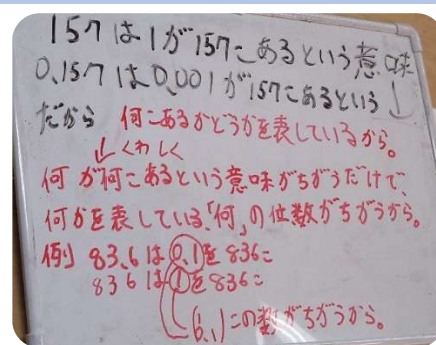 157は1が157こあるという意味
0.157は0.001が157こあるという
だから 何こあるかどうかを表しているから。
くわしく
何が何こあるという意味がちがうだけで、
何かを表している、「何」の位数がちがうから。
例 83.6は0.1を836こ
836は1を836こ
(0.1)この数がちがうから。